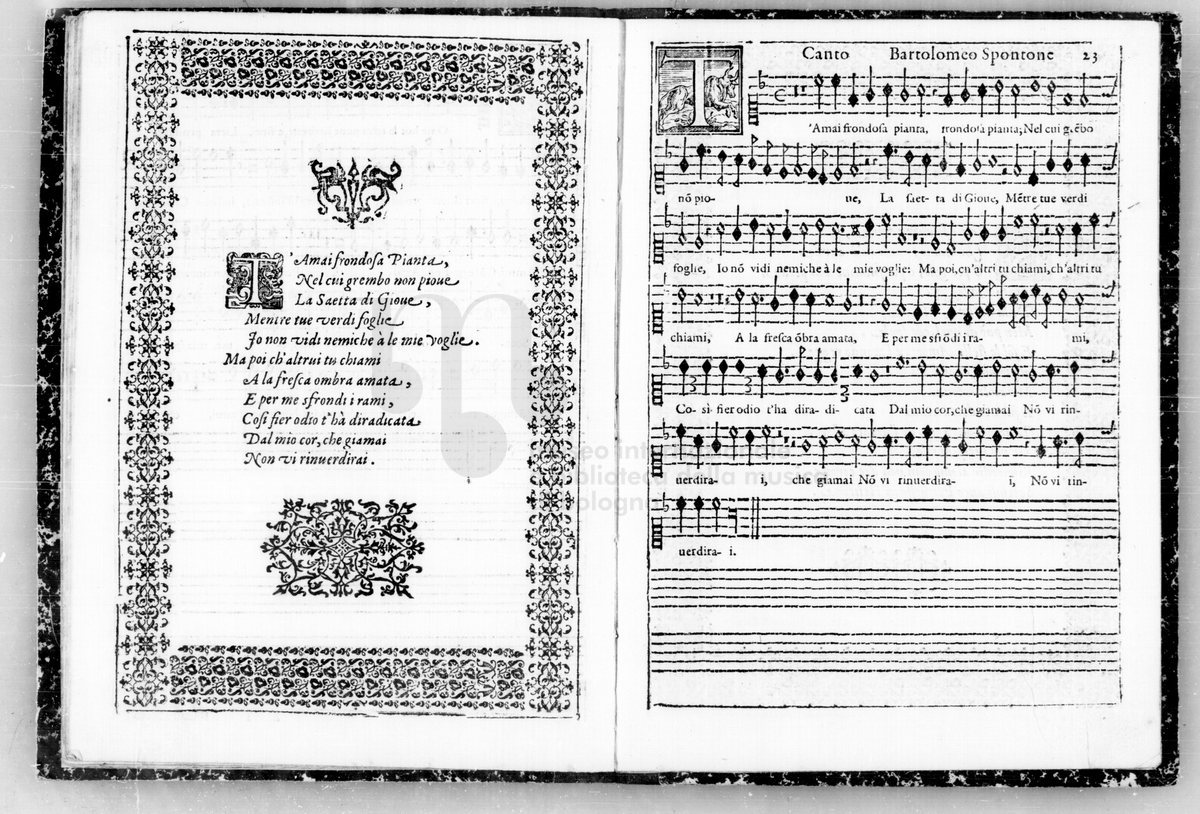 T'Amai frondosa Pianta,
Nel cui grembo non pioue
La Saetta di Gioue,
Mentre tue verdi foglie
Io non vidi nemiche à le mie voglie.
Ma poi ch'altrui tu chiami
A la fresca ombra amata,
E per me sfrondi i rami,
Cosi fier odio t'hà diradicata
Dal mio cor, che giamai
Non vi rinuerdirai.
Canto Bartolomeo Spontone 23
T'Amai frondosa pianta, frondosa pianta; Nel cui g. ẽbo
nõ pio- ue, La saet- ta di Gioue, Mẽtre tue verdi
foglie, Io nõ vidi nemiche à le mie voglie: Ma poi, ch'altri tu chiami, ch'altri tu
chiami, A la fresca õbra amata, E per me sfrõdi i ra- mi,
Co- sì fier odio t'ha dira- di- cata Dal mio cor, che giamai Nõ vi rin-
uerdira- i, che giamai Nõ vi rinuerdira- i, Nõ vi rin-
uerdira- i.
museo internazionale
biblioteca della musica
bologna